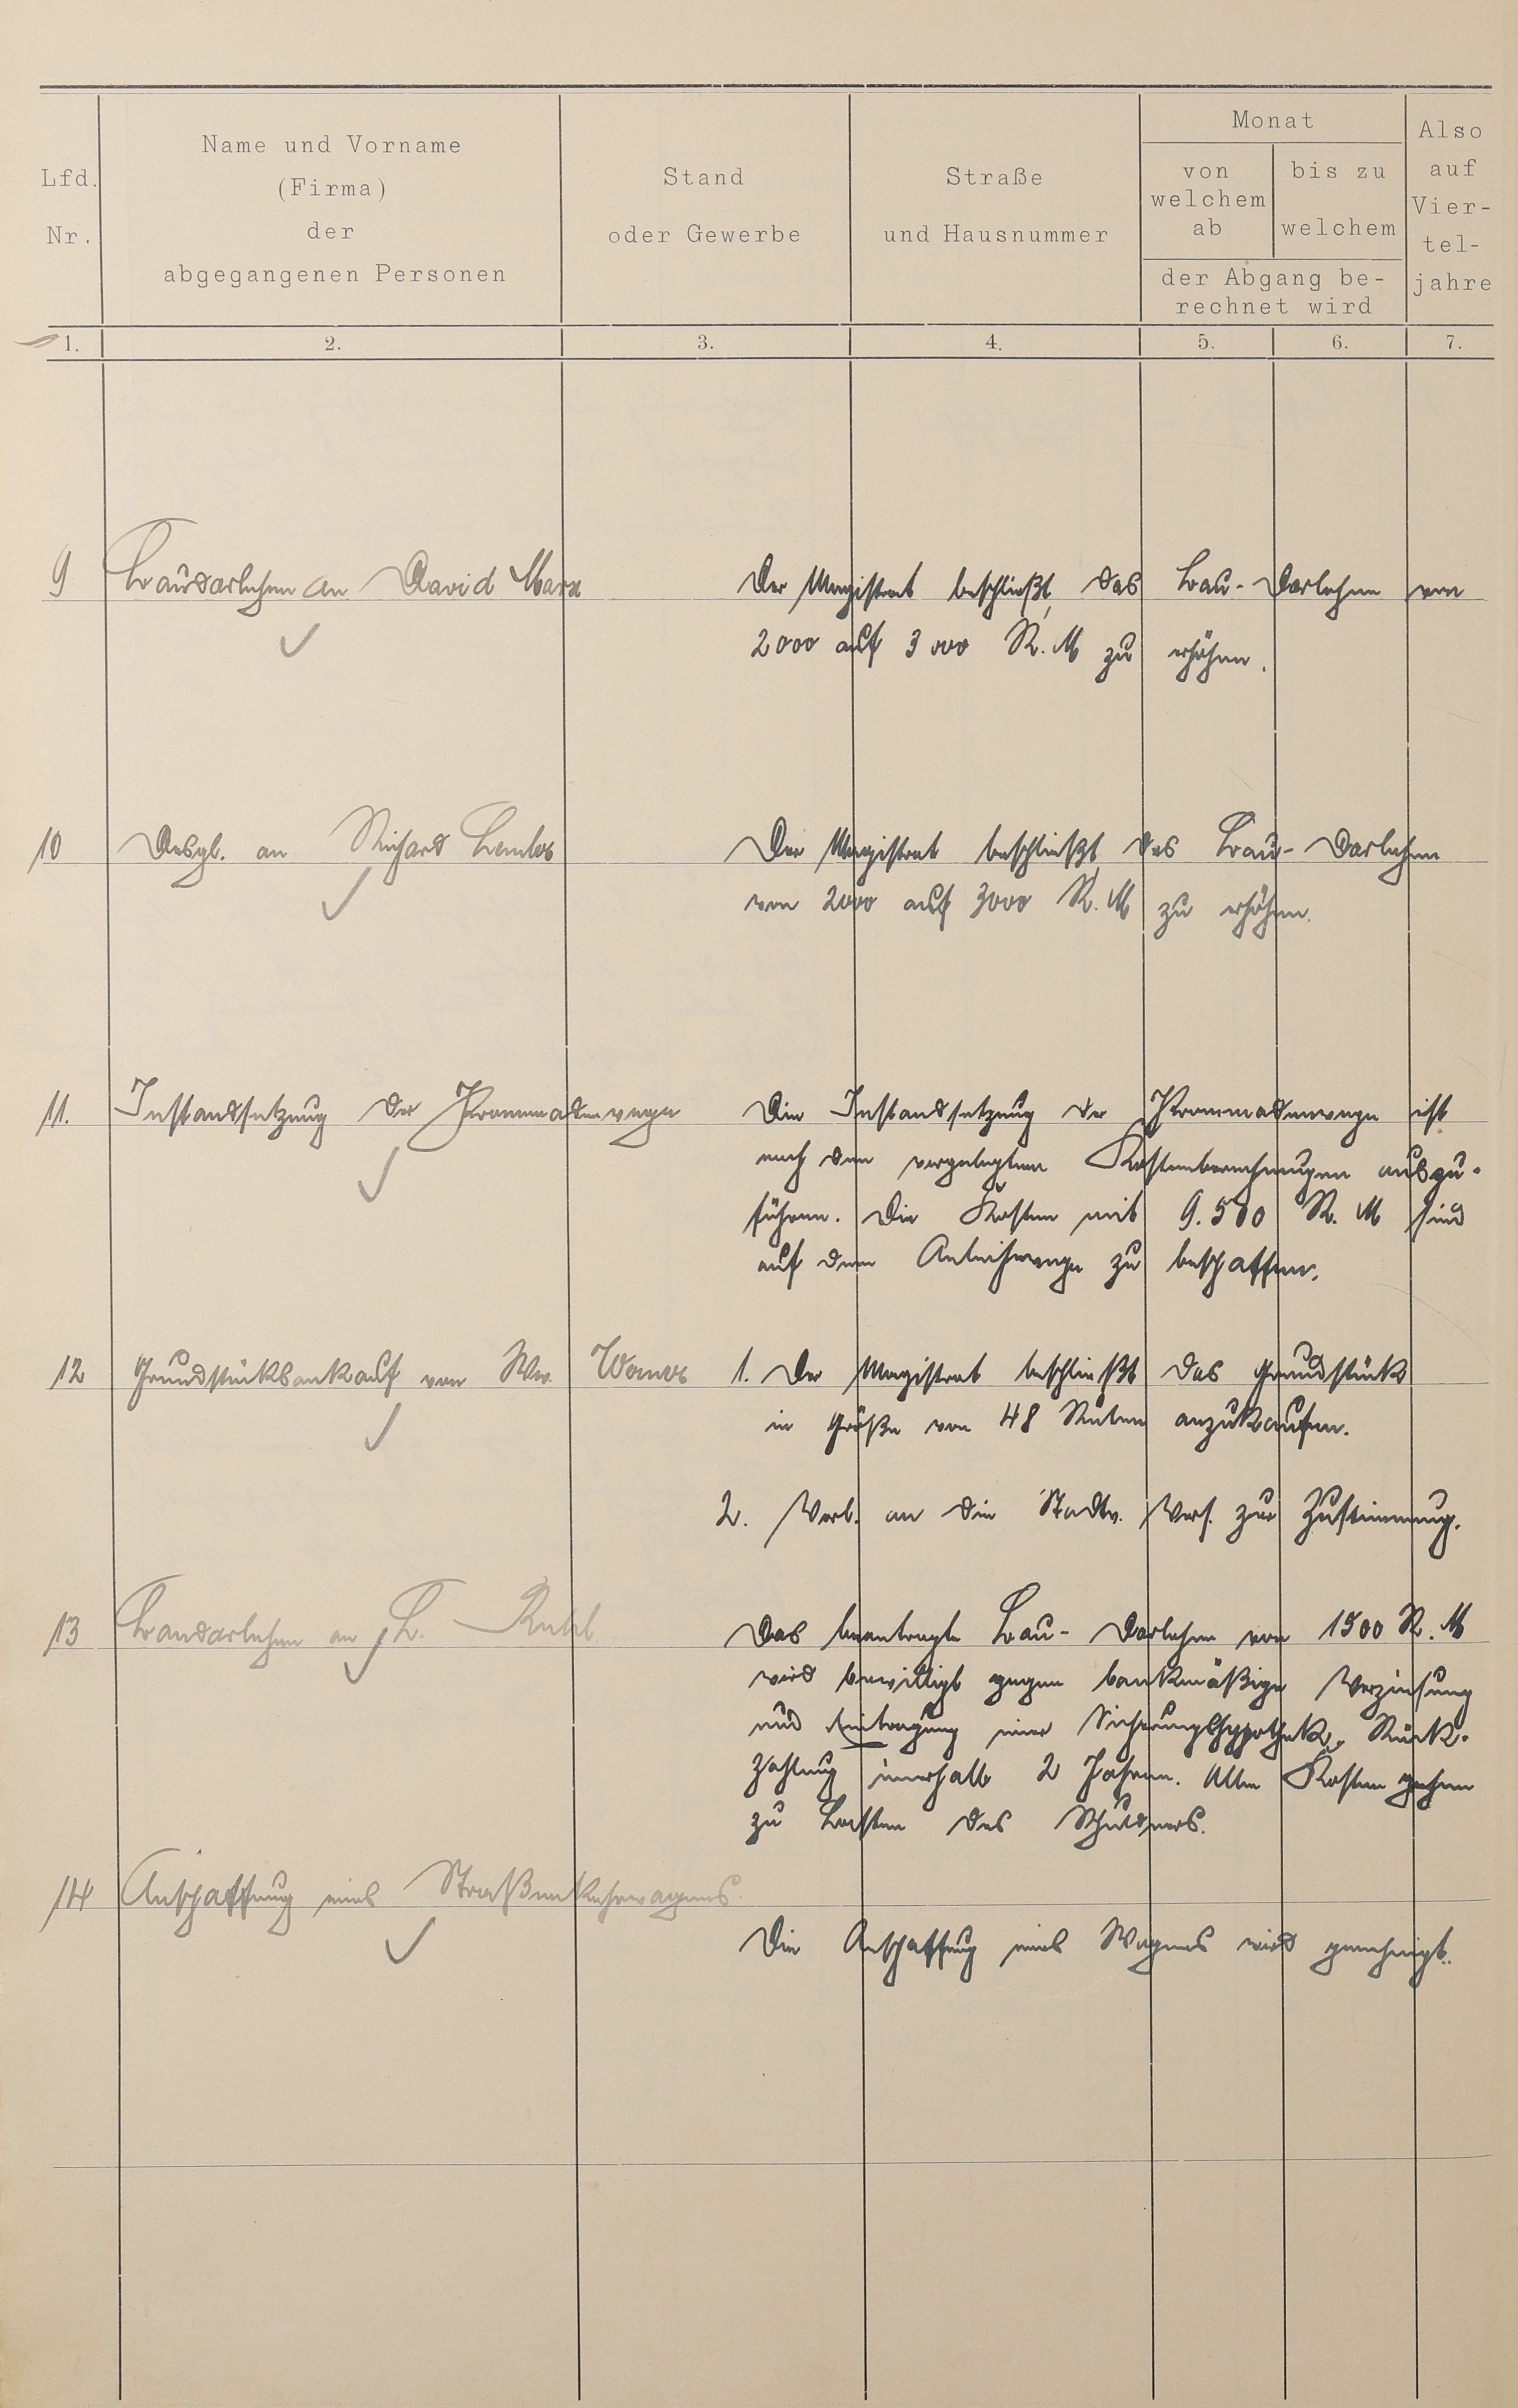 Lfd. Nr.
Name und Vorname
(Firma)
der
abgegangenen Personen
Stand
oder Gewerbe
Straße
und Hausnummer
Monat
von
welchem
ab
bis zu
welchem
der Abgang be-
rechnet wird
Also
auf
Vier-
tel-
jahre
1. 2. 3. 4. 5. 6. 7.
9 Baudarlehen an David Marx
Der Magistrat beschließt, das Bau-Darlehen von
2000 auf 3000 R.M zu erhöhen.
10 Desgl. an Richard
Der Magistrat beschließt das Bau-Darlehen
von 2000 auf 3000 R.M zu erhöhen.
11. Instandsetzung der Promenadenwege
Die Instandsetzung der Promenadenwege ist
nach den vorgelegten Kostenberechnungen auszu-
führen. Die Kosten mit R.M sind
auf dem Anleihewege zu beschaffen.
12 Grundstücksankauf von Ww.
1. Der Magistrat beschließt das Grundstück
in Größe von 48 Ruten anzukaufen.
2. Vorl. an die Stadtv. Vers. zur Zustimmung.
13 Baudarlehen an
Das beantragte Bau-Darlehen von 1500 R.M
wird bewilligt gegen bankmäßige Verzinsung
und Eintragung einer Sicherungshypothek. Rück-
zahlung innerhalb 2 Jahren. Alle Kosten gehen
zu Lasten des Schuldners.
14 Anschaffung eines Straßenkehrwagens.
Die Anschaffung eines Wagens wird genehmigt.